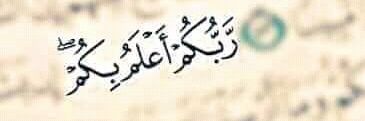 رَّبُّكُمْ أَعْلَمُ بِكُمْ ۖ